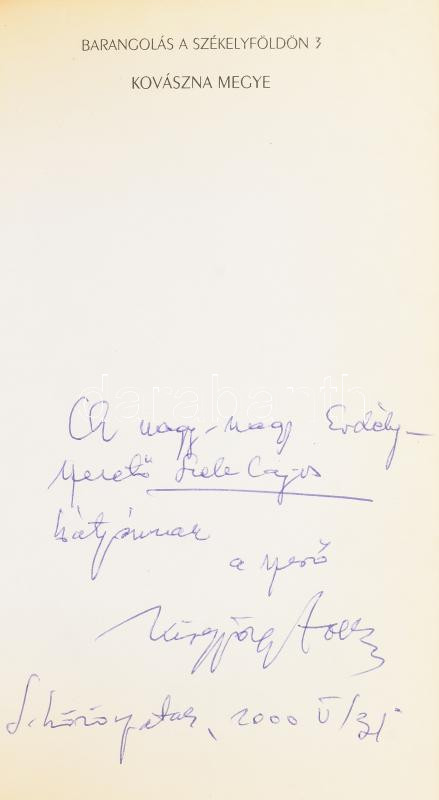 BARANGOLÁS A SZÉKELYFÖLDÖN 3
KOVÁSZNA MEGYE
darabanth
A nagy-nagy Erdély-
szerető Szele Lajos
bátyámnak
a szerző
Kisgyörgy Zoltán
S. kőröspatak, 2000 V/31